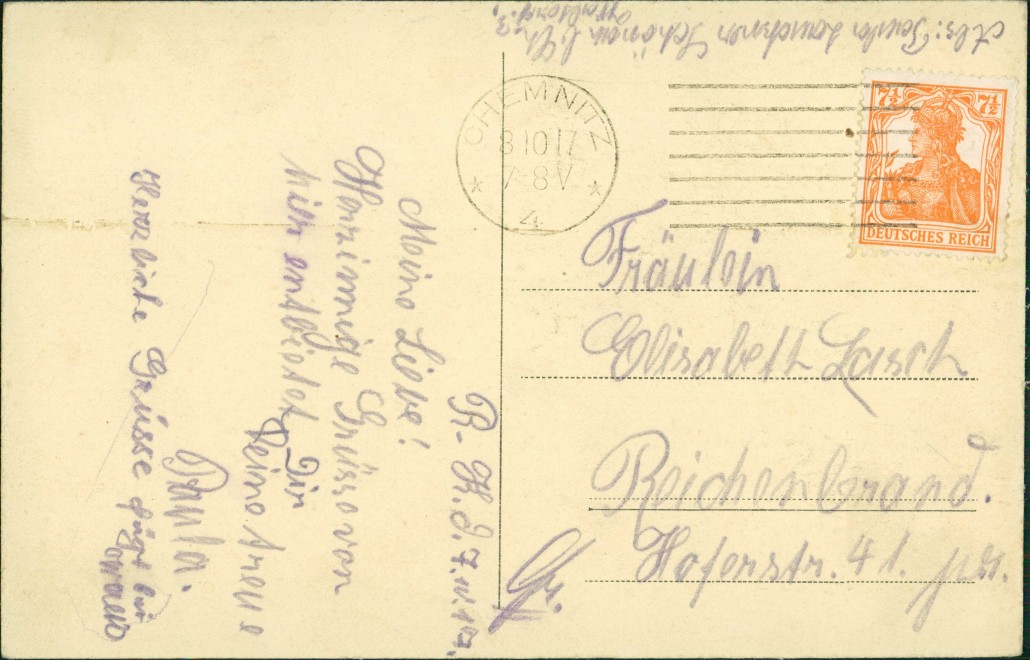 Abs: Paula
Schönau b. Ch.
CHEMNITZ
8 10 17
7-8V
* 4 *
7½ 7½
DEUTSCHES REICH
Fräulein
Elisabeth Lasch
Reichenbrand.
Hoferstr. 41. pr.
R.
Meine Liebe!
Herzinnige Grüsse von
hier entbietet Dir
Deine treue
Paula.
Herzliche Grüsse fügt bei